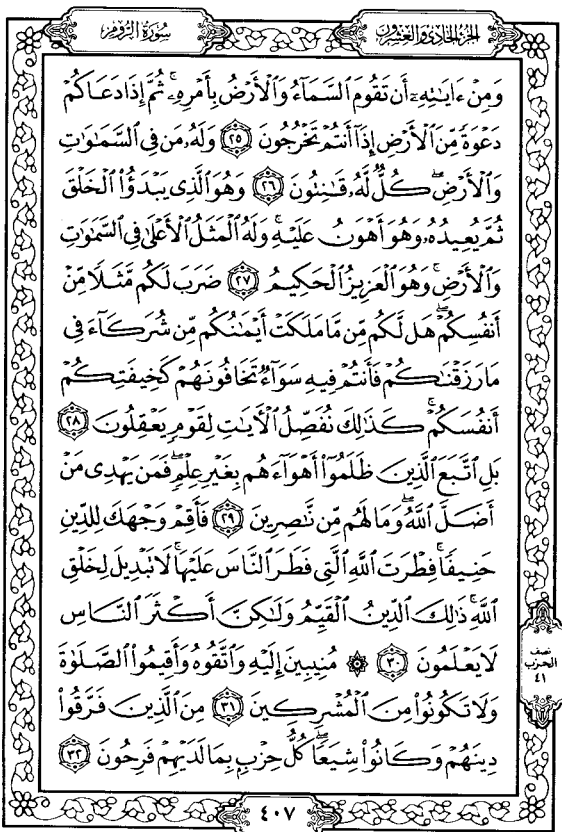 الجزء الحادي والعشرون
سورة الروم
وَمِنْ ءَايَـٰتِهِۦٓ أَن تَقُومَ ٱلسَّمَآءُ وَٱلْأَرْضُ بِأَمْرِهِۦ ۚ ثُمَّ إِذَا دَعَاكُمْ
دَعْوَةً مِّنَ ٱلْأَرْضِ إِذَآ أَنتُمْ تَخْرُجُونَ ٢٥ وَلَهُۥ مَن فِى ٱلسَّمَـٰوَٰتِ
وَٱلْأَرْضِ ۖ كُلٌّ لَّهُۥ قَـٰنِتُونَ ٢٦ وَهُوَ ٱلَّذِى يَبْدَؤُا۟ ٱلْخَلْقَ
ثُمَّ يُعِيدُهُۥ وَهُوَ أَهْوَنُ عَلَيْهِ ۚ وَلَهُ ٱلْمَثَلُ ٱلْأَعْلَىٰ فِى ٱلسَّمَـٰوَٰتِ
وَٱلْأَرْضِ ۚ وَهُوَ ٱلْعَزِيزُ ٱلْحَكِيمُ ٢٧ ضَرَبَ لَكُم مَّثَلًا مِّنْ
أَنفُسِكُمْ ۖ هَل لَّكُم مِّن مَّا مَلَكَتْ أَيْمَـٰنُكُم مِّن شُرَكَآءَ فِى
مَا رَزَقْنَـٰكُمْ فَأَنتُمْ فِيهِ سَوَآءٌ تَخَافُونَهُمْ كَخِيفَتِكُمْ
أَنفُسَكُمْ ۚ كَذَٰلِكَ نُفَصِّلُ ٱلْـَٔايَـٰتِ لِقَوْمٍ يَعْقِلُونَ ٢٨
بَلِ ٱتَّبَعَ ٱلَّذِينَ ظَلَمُوٓا۟ أَهْوَآءَهُم بِغَيْرِ عِلْمٍ ۖ فَمَن يَهْدِى مَنْ
أَضَلَّ ٱللَّهُ ۖ وَمَا لَهُم مِّن نَّـٰصِرِينَ ٢٩ فَأَقِمْ وَجْهَكَ لِلدِّينِ
حَنِيفًا ۚ فِطْرَتَ ٱللَّهِ ٱلَّتِى فَطَرَ ٱلنَّاسَ عَلَيْهَا ۚ لَا تَبْدِيلَ لِخَلْقِ
ٱللَّهِ ۚ ذَٰلِكَ ٱلدِّينُ ٱلْقَيِّمُ وَلَـٰكِنَّ أَكْثَرَ ٱلنَّاسِ
لَا يَعْلَمُونَ ٣٠ ۞ مُنِيبِينَ إِلَيْهِ وَٱتَّقُوهُ وَأَقِيمُوا۟ ٱلصَّلَوٰةَ
وَلَا تَكُونُوا۟ مِنَ ٱلْمُشْرِكِينَ ٣١ مِنَ ٱلَّذِينَ فَرَّقُوا۟
دِينَهُمْ وَكَانُوا۟ شِيَعًا ۖ كُلُّ حِزْبٍۭ بِمَا لَدَيْهِمْ فَرِحُونَ ٣٢
نصف
الحزب
٤١
٤٠٧